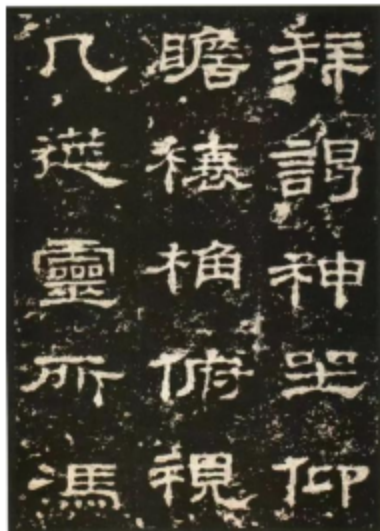 拜謁神坐仰
瞻榱桷俯視
几筵靈所馮